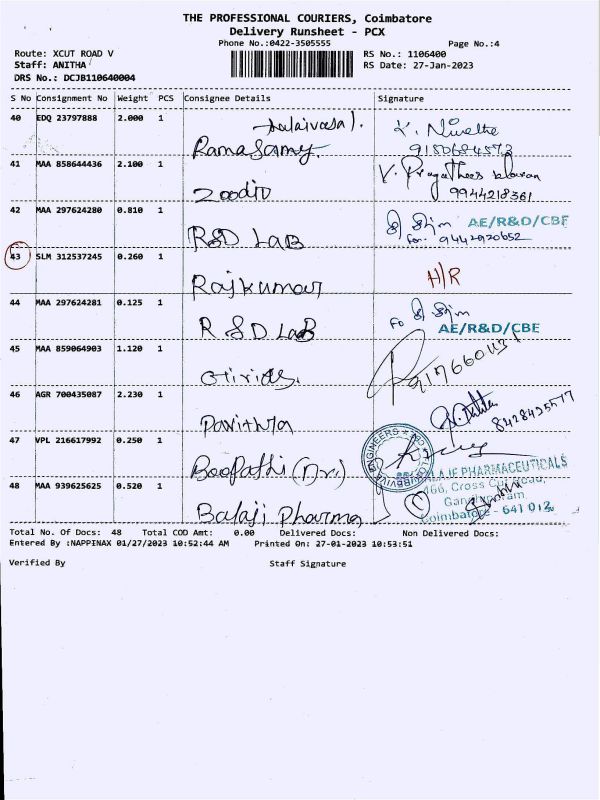 THE PROFESSIONAL COURIERS, Coimbatore
Delivery Runsheet - PCX
Phone No.:0422-3505555
Page No.:4
Route: XCUT ROAD V
Staff: ANITHA
DRS No.: DCJB110640004
RS No.: 1106400
RS Date: 27-Jan-2023
S No Consignment No Weight PCS Consignee Details Signature
40 EDQ 23797888 2.000 1
Ramasamy.
9150684573
41 MAA 858644436 2.100 1
Zoodio
9944218361
42 MAA 297624280 0.810 1
R&D Lab
AE/R&D/CBE
For. 9442920652
43 SLM 312537245 0.260 1
Rajkumar
H/R
44 MAA 297624281 0.125 1
R&D Lab
Fo
AE/R&D/CBE
45 MAA 859064903 1.120 1
46 AGR 700435087 2.230 1
Pavithra
8428425577
47 VPL 216617992 0.250 1
Boopathi
ENGINEERS
48 MAA 939625625 0.520 1
Balaji Pharma
PHARMACEUTICALS
166, Cross Cut Road,
Gandhipuram
Coimbatore - 641 012
Total No. Of Docs: 48 Total COD Amt: 0.00 Delivered Docs: Non Delivered Docs:
Entered By :NAPPINAX 01/27/2023 10:52:44 AM Printed On: 27-01-2023 10:53:51
Verified By Staff Signature